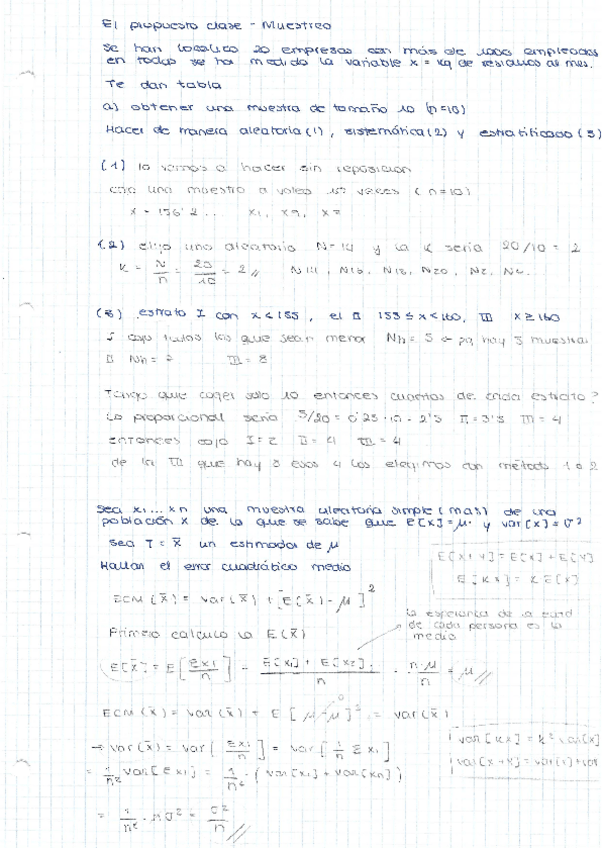 El propuesto clase - Muestreo
Se han localizado 20 empresas con más de 1000 empleados
en todas se ha medido la variable x = kg de residuos al mes.
Te dan tabla
a) obtener una muestra de tamaño 10 (n=10)
Hacer de manera aleatoria (1), sistemática (2) y estratificado (3)
(1) lo vamos a hacer sin reposición
una muestra a voleo 10 veces (n=10)
x = 176'2 ...
(2) elijo uno aleatorio N=14 y la K sería 20/10 = 2
K = N/n = 20/10 = 2 // N14, N16, N18, N20, N2, N4...
(3) estrato I con x < 155, el II 155 ≤ x < 160, III x ≥ 160
I cojo todos los que sean menor Nh = 5 hay 5 muestras
II Nh = 7 III = 8
Tengo que coger solo 10 entonces cuantos de cada estrato?
Lo proporcional sería 5/20 = 0'25 · 10 = 2'5 II = 3'5 III = 4
entonces cojo I = 2 II = 4 III = 4
de la III que hay 8 esos 4 los elegimos con método 1 o 2
Sea x1 ... xn una muestra aleatoria simple (mas) de una
población x de lo que se sabe que E[x] = μ y var(x) = σ²
sea T = x̄ un estimador de μ
Hallar el error cuadrático medio
E[x+y] = E[x] + E[y]
E[kx] = k E[x]
ECM(x̄) = var(x̄) + [E(x̄) - μ]²
Primero calculo la E(x̄)
la esperanza de la
de cada persona es la
media
E[x̄] = E[Σxi/n] = E[x1] + E[x2].../n = n·μ/n = μ //
ECM(x̄) = var(x̄) + E[μ - μ]² = var(x̄)
→ var(x̄) = var[Σxi/n] = var[1/n Σxi]
var[kx] = k² var[x]
var[x+y] = var(x) + var
= 1/n² var[Σxi] = 1/n² · (var[x1] + var[xn])
= 1/n² · nσ² = σ²/n //